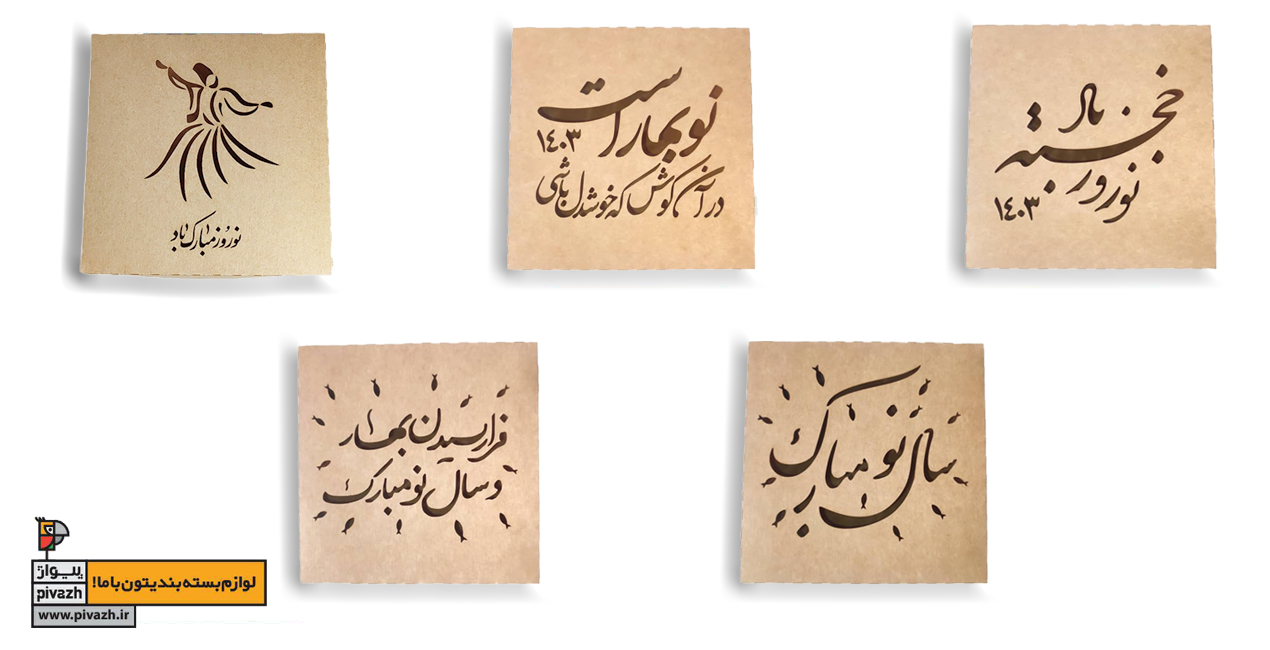 نوروز مبارک باد
نو بهار است
۱۴۰۳
در آن کوش که خوشدل باشی
خجسته باد
نوروز
۱۴۰۳
فرا رسیدن بهار
و سال نو مبارک
سال نو مبارک
پیواژ
pivazh
لوازم بسته بندیتون با ما!
www.pivazh.ir